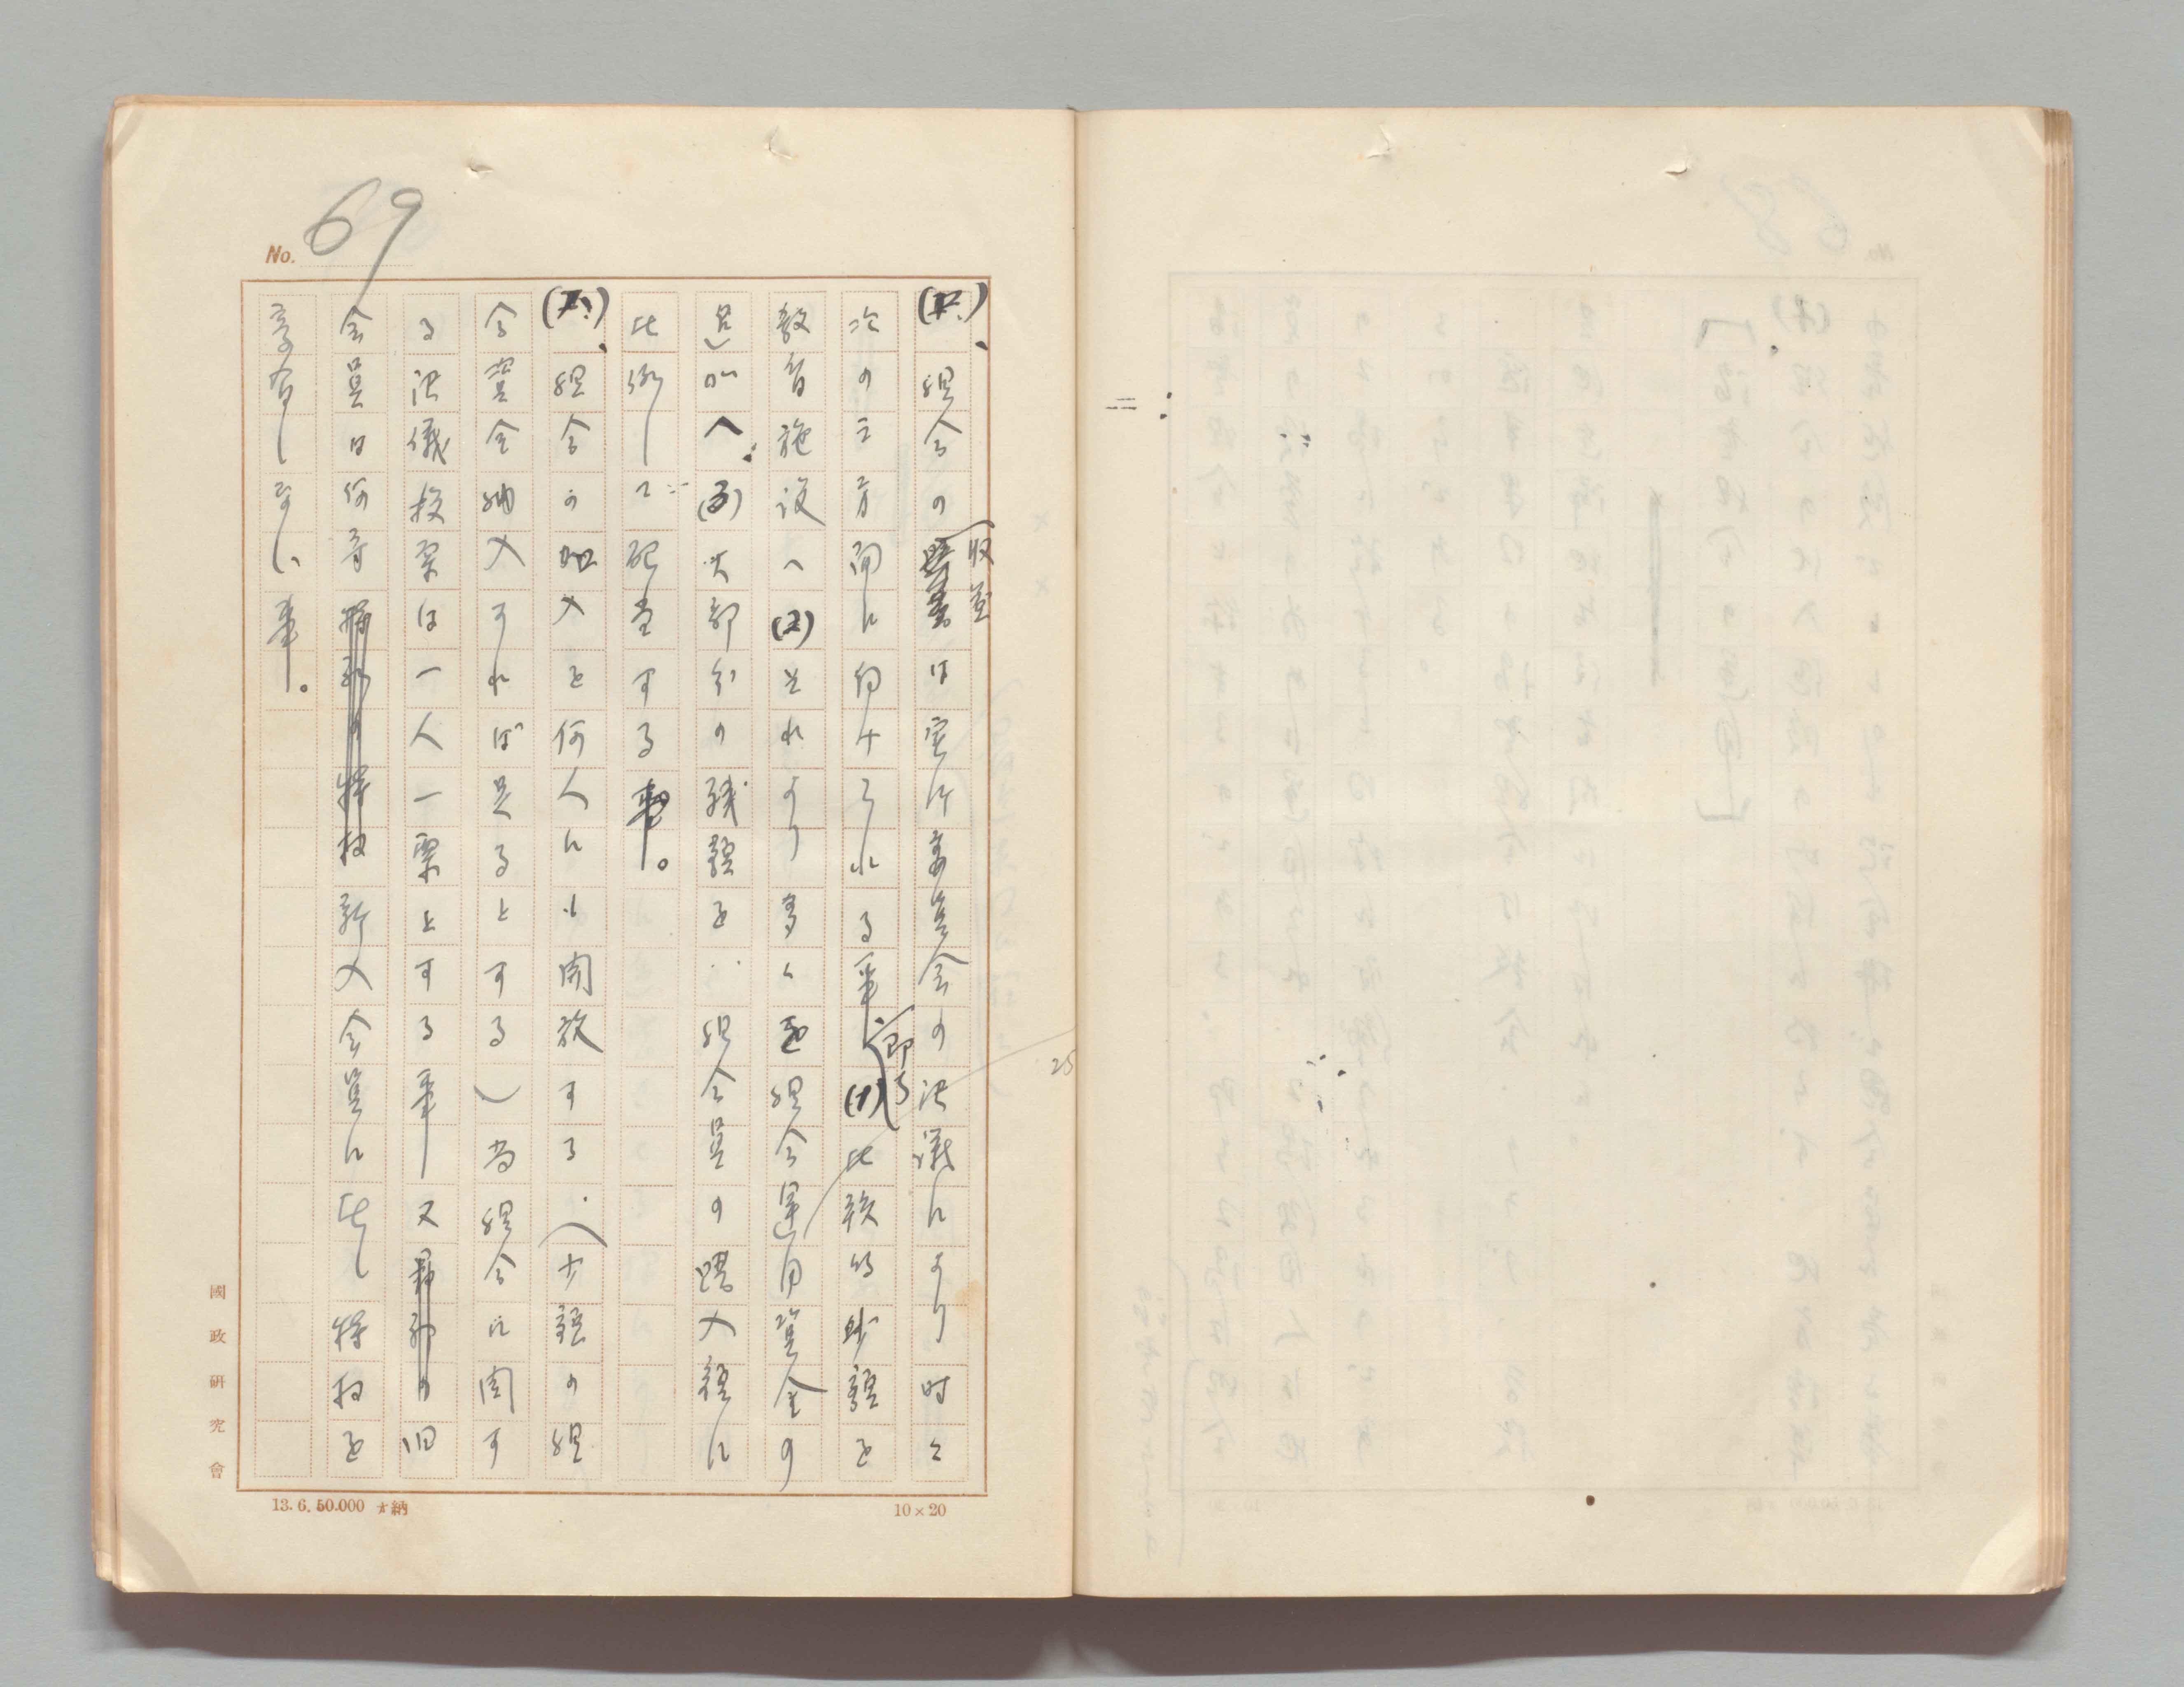 No. 69
(ホ)、組合の収益は実行委員会の決議により時に
次の三方向に向けられる事、即ち(1)比較的少額を
教育施設へ(2)それより多くを組合運用資金の
足し加へ、(3)大部分の残額を、組合員の購入額に
比例して配当する事。
組合の加入を何人にも開放する、(少額の組
合資金納入すれば足るとする)尚組合に関す
る決議投票は一人一票とする事 又 旧
会員は何等 新入会員に比し特权を
享有しない事。
25
國政研究會
13. 6. 50.000 納
10×20